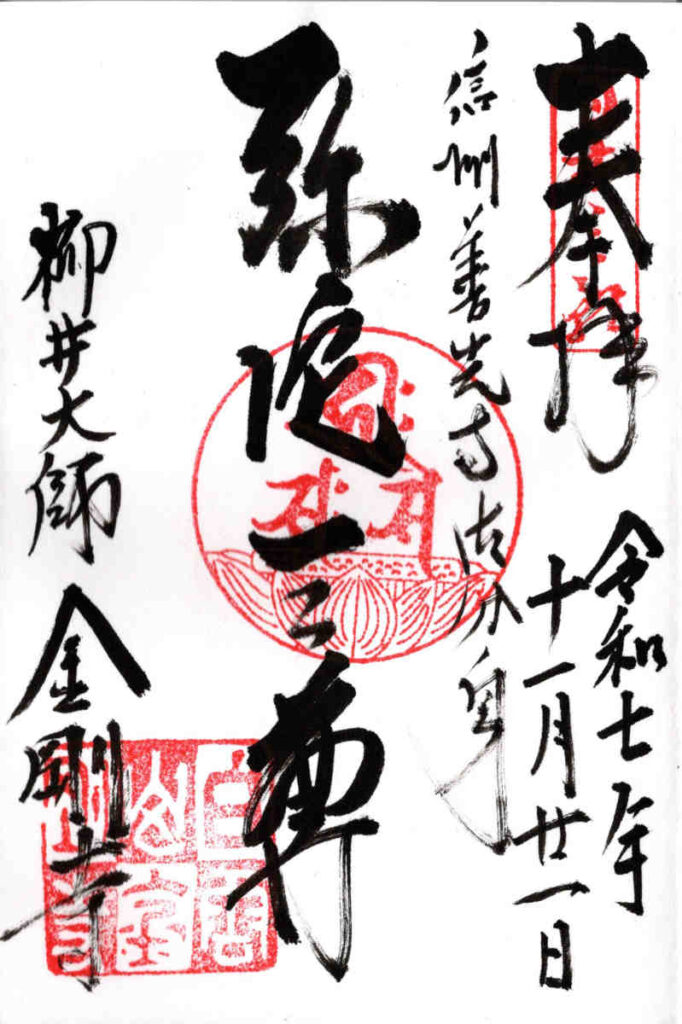 奉拝
令和七年
十一月廿一日
信州善光寺御分身
弥陀三尊
柳井大師
金剛寺